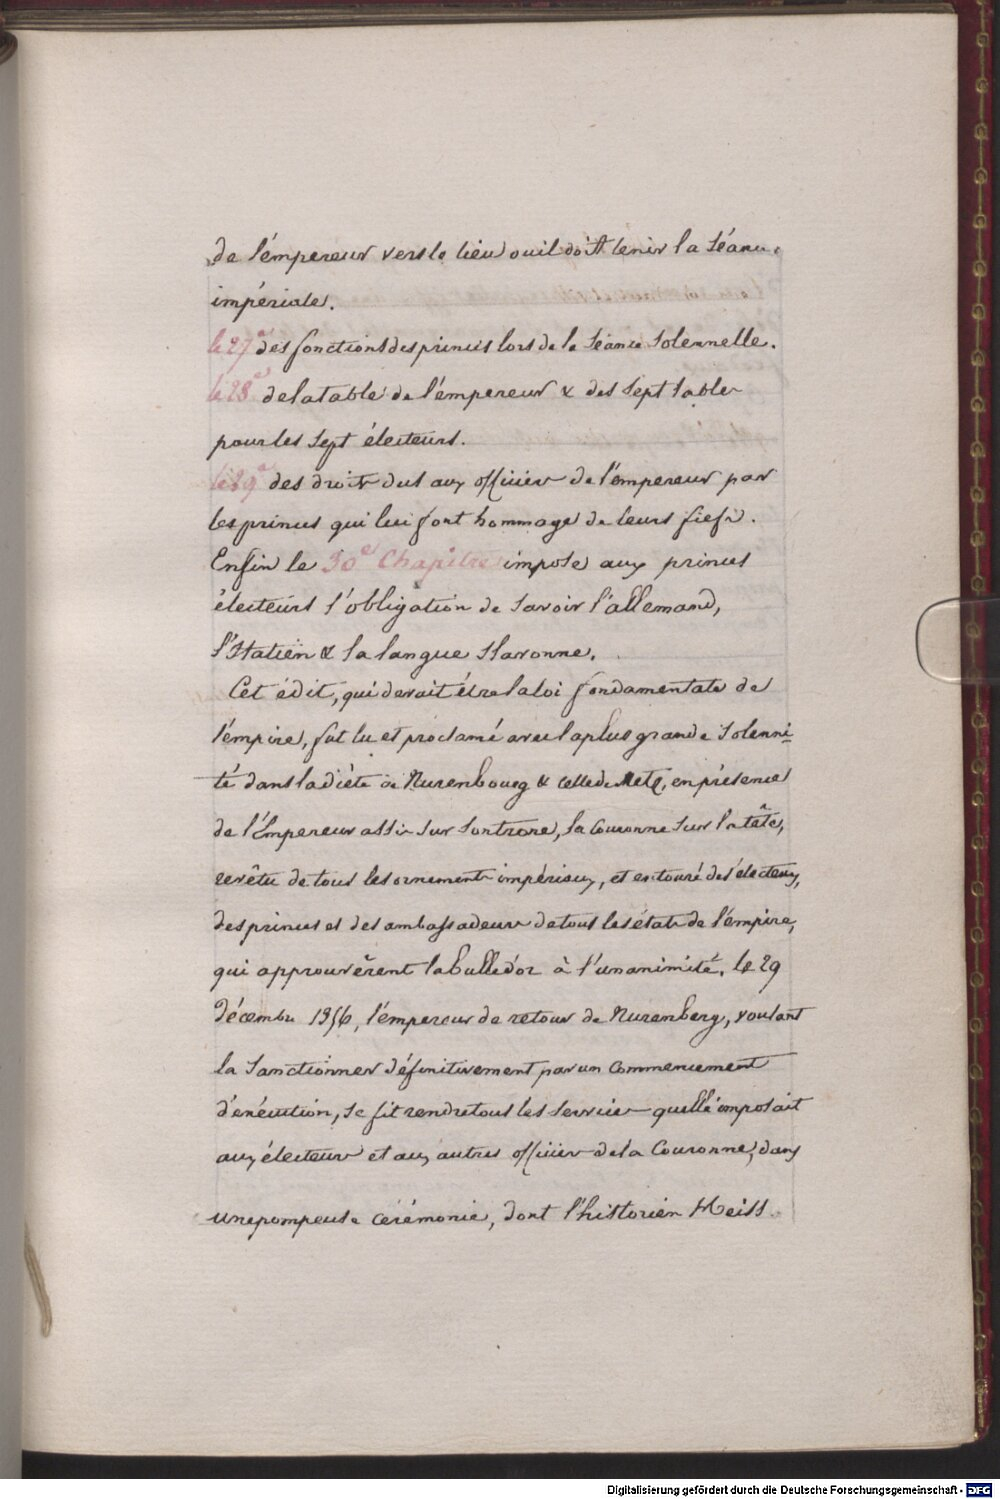 de l'émpereur vers le lieu ou il doit tenir la séance
impériale.
le 27e des fonctions des princes lors de la séance solennelle.
le 28e de la table de l'émpereur & des sept tables
pour les sept électeurs.
le 29e des droits dus aux officiers de l'émpereur par
les princes qui lui font hommage de leurs fiefs.
Enfin le 30e Chapitre impose aux princes
électeurs l'obligation de savoir l'allemand,
l'Italien & la langue slavonne.
Cet édit, qui devait être la loi fondamentale de
l'émpire, fut lu et proclamé avec la plus grande solenni-
té dans la diète de Nurenbourg & celle de Metz, en présence
de l'Empereur assis sur son trone, la Couronne sur la tête,
revêtu de tous les ornements impériaux, et entouré des électeurs,
des princes et des ambassadeurs de tous les états de l'émpire,
qui approuvèrent la bulle d'or à l'unanimité. le 29
décembre 1356, l'émpereur de retour de Nuremberg, voulant
la sanctionner définitivement par un commencement
d'exécution, se fit rendre tous les services quelle imposait
aux électeurs et aux autres officiers de la Couronne, dans
une pompeuse cérémonie, dont l'historien Heiss
Digitalisierung gefördert durch die Deutsche Forschungsgemeinschaft - DFG